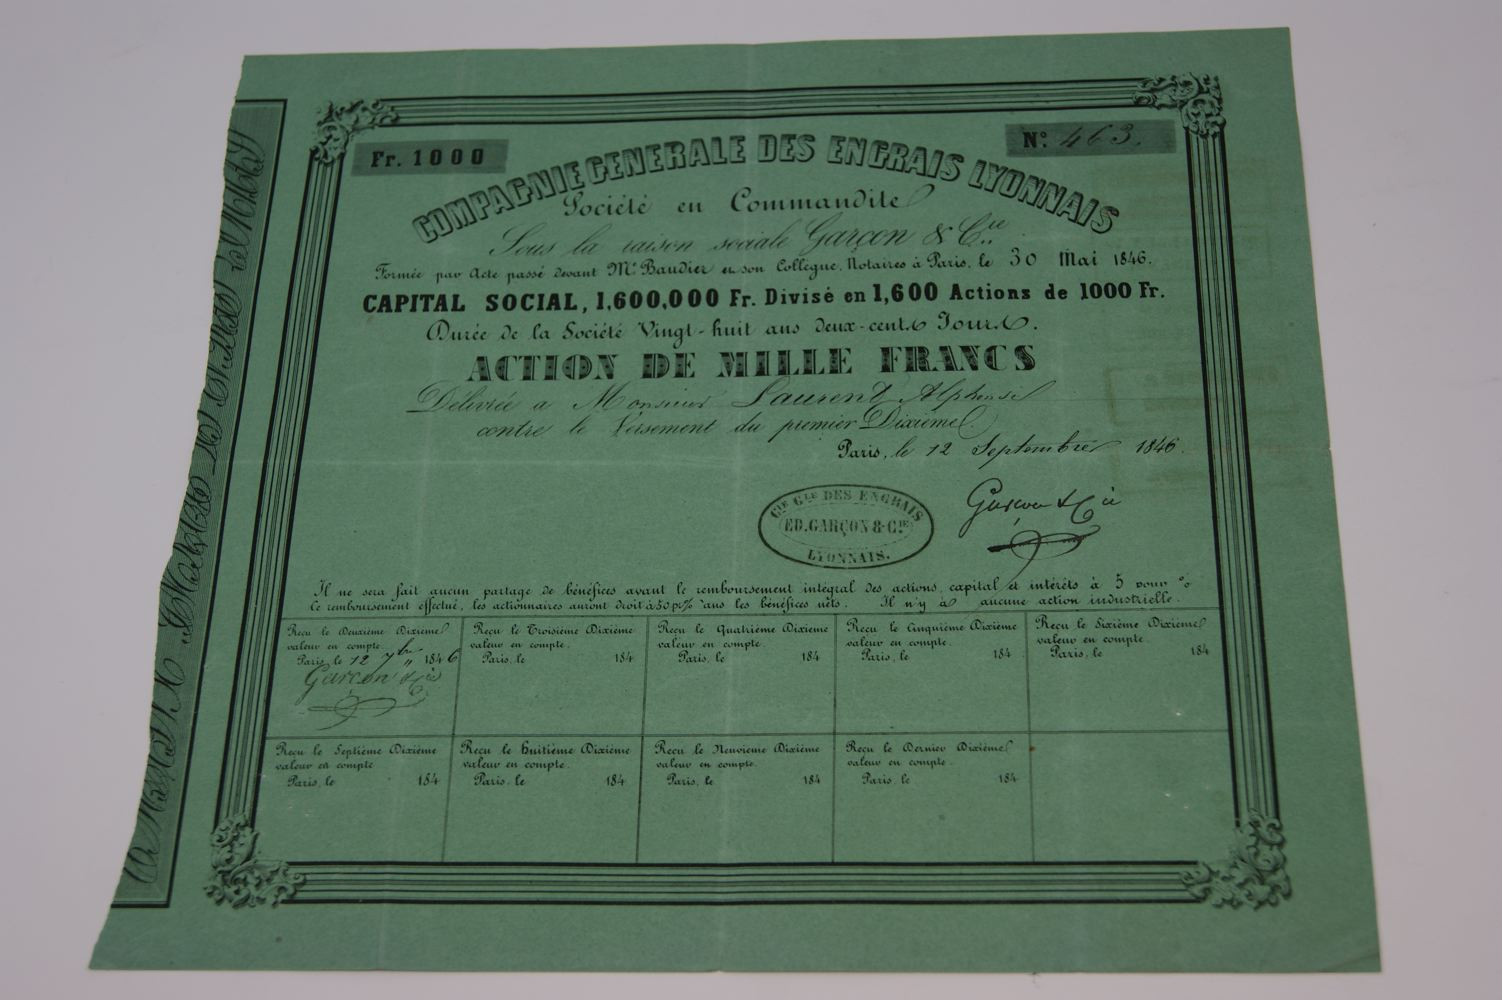 Fr. 1000
Nº 463.
COMPAGNIE GENERALE DES ENGRAIS LYONNAIS
Société en Commandite
Sous la raison sociale Garçon & Cie
Formée par Acte passé devant Me Baudier et son Collègue, Notaires à Paris, le 30 Mai 1846.
CAPITAL SOCIAL, 1,600,000 Fr. Divisé en 1,600 Actions de 1000 Fr.
Durée de la Société Vingt-huit ans deux-cents Jours.
ACTION DE MILLE FRANCS
Délivrée a Monsieur Laurent Alphonse
contre le Versement du premier Dixième.
Paris, le 12 Septembre 1846.
Cie Gle DES ENGRAIS
ED. GARÇON & Cie
LYONNAIS.
Garçon & Cie
Il ne sera fait aucun partage de bénéfices avant le remboursement intégral des actions, capital et intérêts à 5 pour %
Ce remboursement effectué, les actionnaires auront droit à 50 pr% dans les bénéfices nets. Il n'y à aucune action industrielle.
Reçu le Deuxième Dixième
valeur en compte.
Paris, le 12 7bre 1846
Garçon & Cie
Reçu le Troisième Dixième
valeur en compte.
Paris, le 184
Reçu le Quatrième Dixième
valeur en compte.
Paris, le 184
Reçu le Cinquième Dixième
valeur en compte.
Paris, le 184
Reçu le Sixième Dixième
valeur en compte.
Paris, le 184
Reçu le Septième Dixième
valeur en compte
Paris, le 184
Reçu le huitième Dixième
valeur en compte.
Paris, le 184
Reçu le Neuvième Dixième
valeur en compte.
Paris, le 184
Reçu le Dernier Dixième
valeur en compte.
Paris, le 184